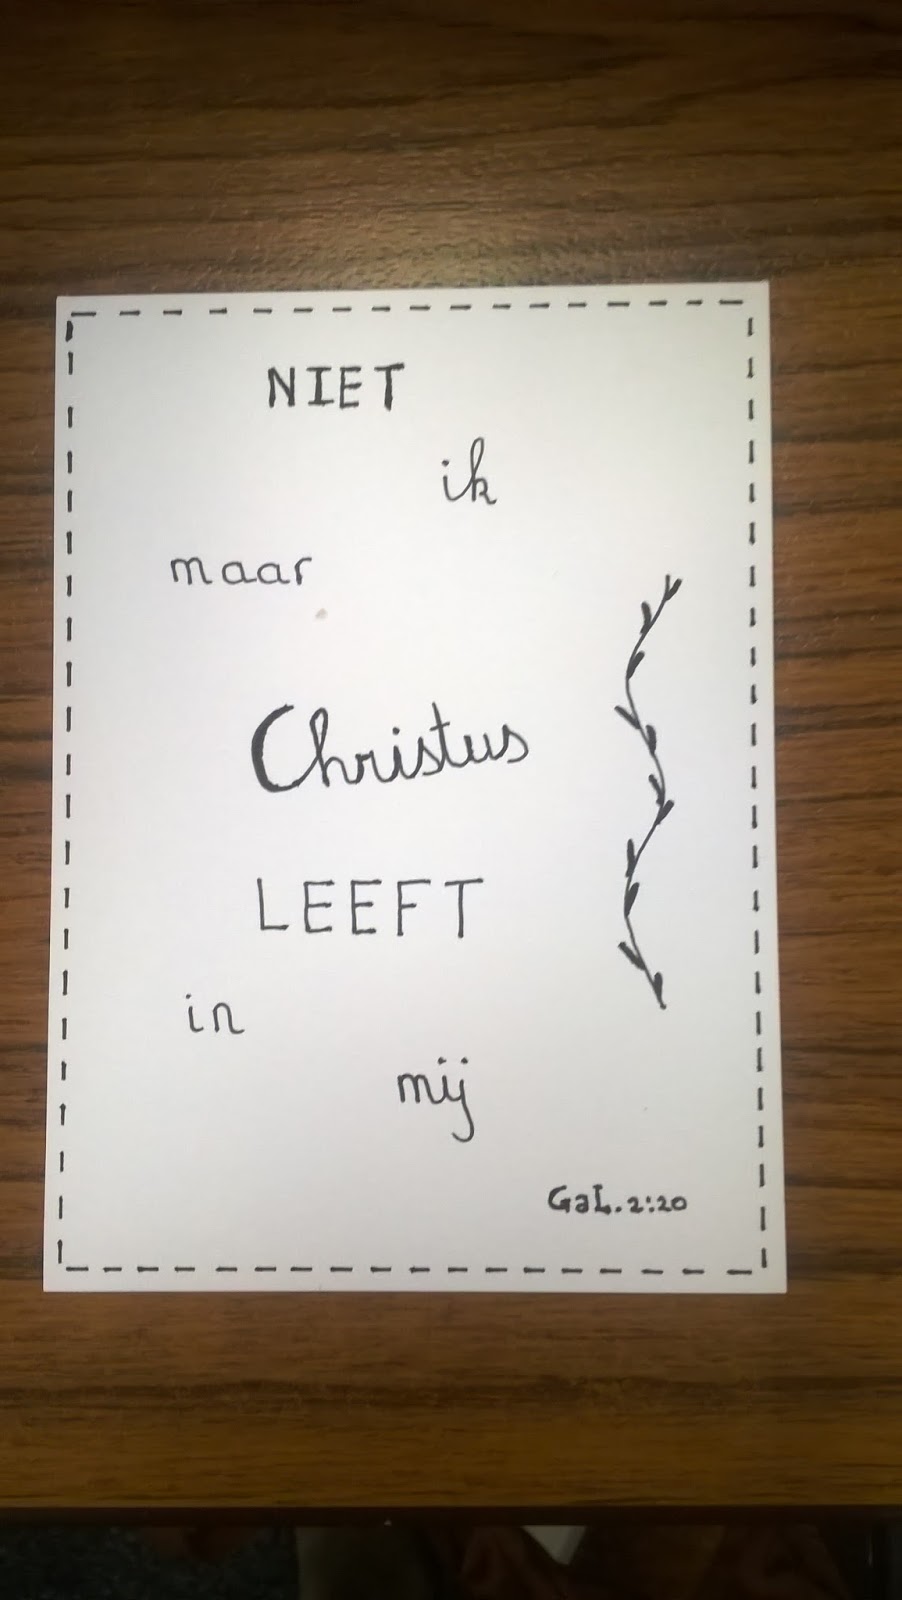 NIET
ik
maar
Christus
LEEFT
in
mij
GaL. 2:20